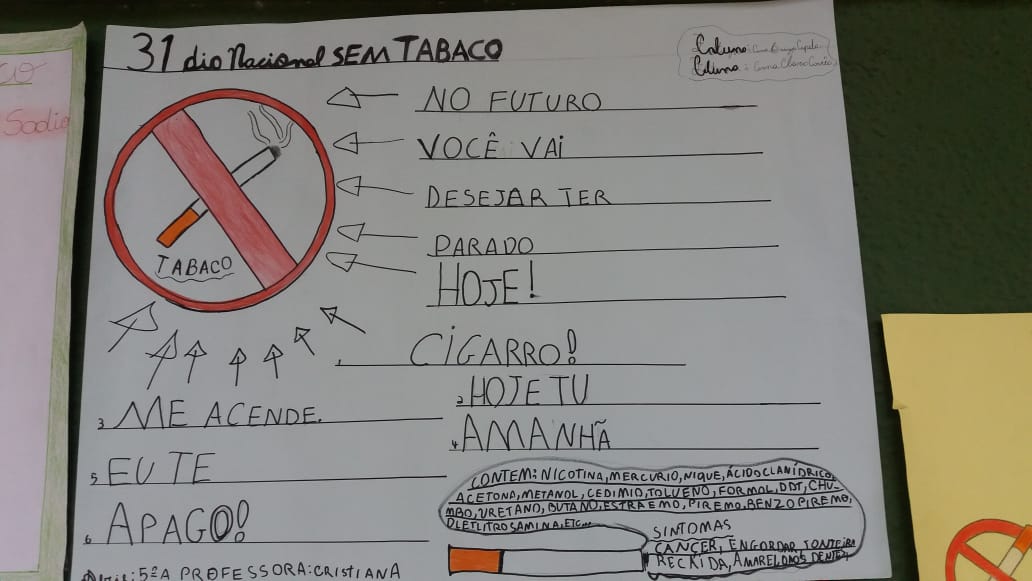 31 dio Nacional SEM TABACO
Coluno:
Coluna:
NO FUTURO
VOCÊ VAi
DESEJAR TER
PARADO
HOJE!
TABACO
1. CIGARRO!
2. HOJE TU
3. ME ACENDE.
4. AMANHÃ
5. EU TE
6. APAGO!
CONTEM: NICOTINA, MERCURIO, NIQUE, ÁCIDO CLANÍDRICO,
ACETONA, METANOL, CEDIMIO, TOLUENO, FORMOL, DDT, CHU-
MBO, URETANO, BUTANO, ESTRAEMO, PIREMO, BENZOPIREMO,
DLETLITROSAMINA, ETC...
SINTOMAS
CANCER, ENGORDAR, TONTEIRA
RECKIDA, AMARELDAOS DENTES,
5ºA PROFESSORA: CRISTIANA
Sodio